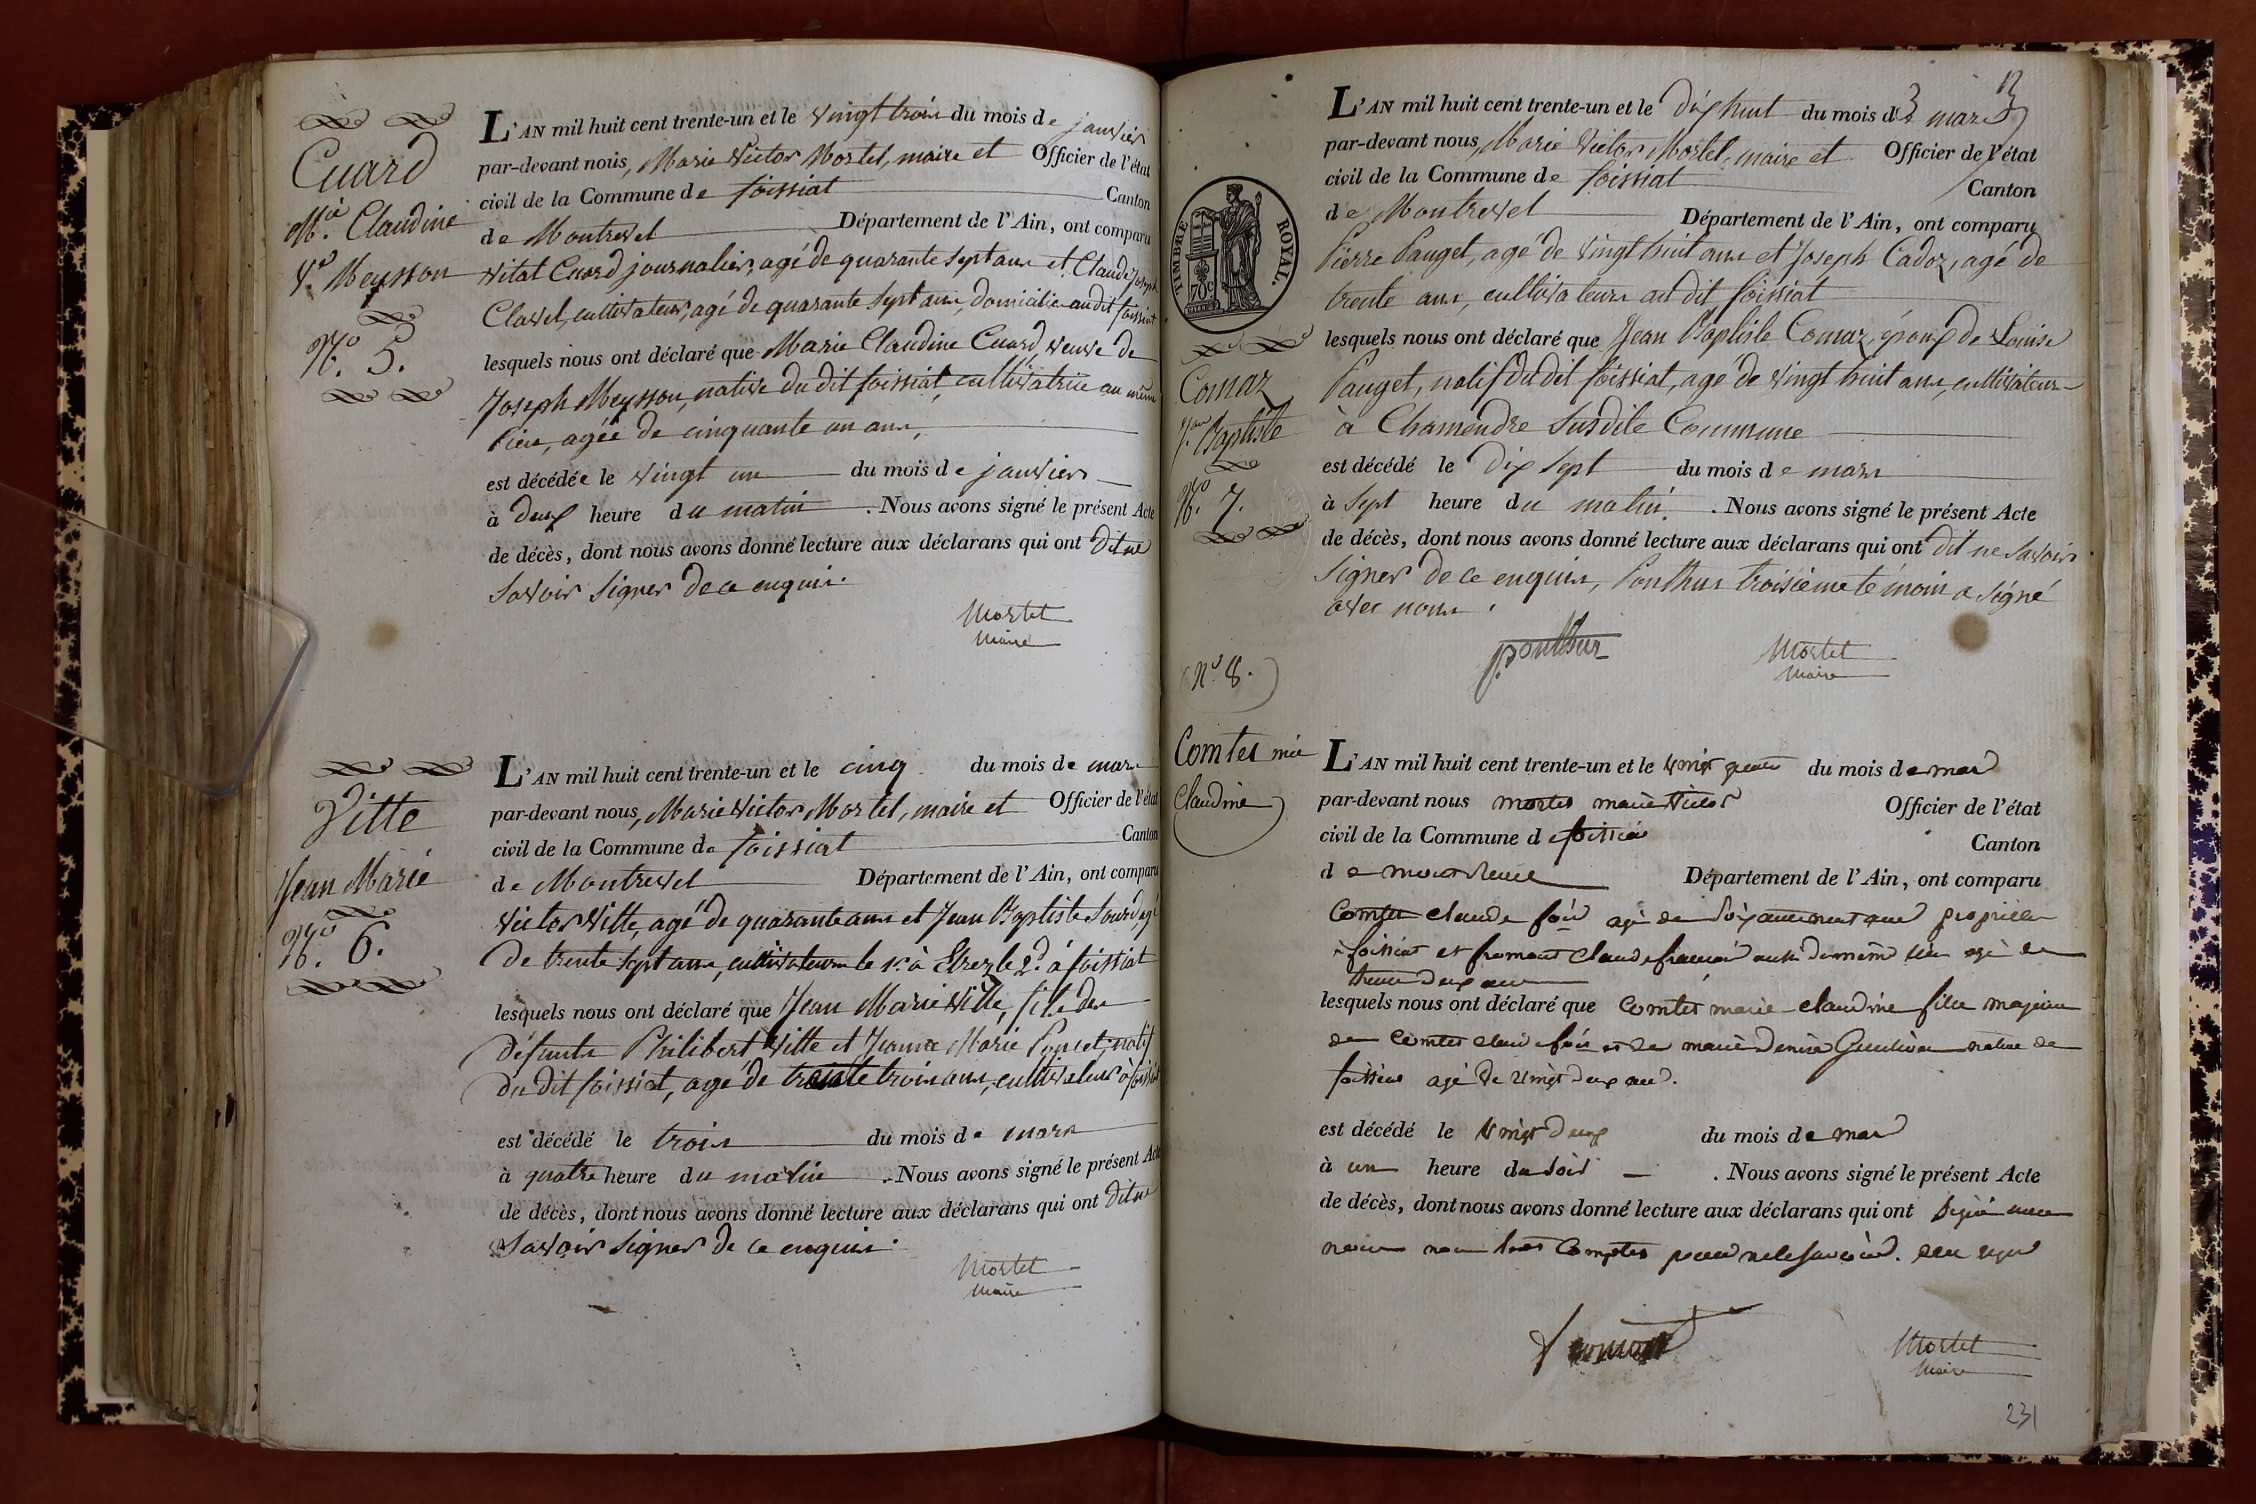 Cuard
M.ie Claudine
V.e Meysson
N.o 5.
L'AN mil huit cent trente-un et le vingt trois du mois de janvier
par-devant nous, Marie Victor Mortel, maire et Officier de l'état
civil de la Commune de foissiat Canton
de Montrevel Département de l'Ain, ont comparu
Vital Cuard journalier, agé de quarante sept ans et Claude Joseph
Clavel, cultivateur, agé de quarante sept ans, domiciliés au dit foissiat
lesquels nous ont déclaré que Marie Claudine Cuard veuve de
Joseph Meysson, native du dit foissiat, cultivatrice au même
lieu, agée de cinquante un ans,
est décédée le vingt un du mois de janvier
à deux heure du matin . Nous avons signé le présent Acte
de décès, dont nous avons donné lecture aux déclarans qui ont dit ne
savoir signer de ce enquis.
Mortel
Maire
Vitte
Jean Marie
N.o 6.
L'AN mil huit cent trente-un et le cinq du mois de mars
par-devant nous, Marie Victor Mortel, maire et Officier de l'état
civil de la Commune de foissiat Canton
de Montrevel Département de l'Ain, ont comparu
Victor Vitte, agé de quarante ans et Jean Baptiste Sourd, agé
de trente sept ans, cultivateurs le 1.er à Etrez le 2.d à foissiat
lesquels nous ont déclaré que Jean Marie Vitte, fils des
défunts Philibert Vitte et Jeanne Marie Poncet, natif
du dit foissiat, agé de trente trois ans, cultivateur à foissiat
est décédé le trois du mois de mars
à quatre heure du matin . Nous avons signé le présent Acte
de décès, dont nous avons donné lecture aux déclarans qui ont dit ne
savoir signer de ce enquis.
Mortel
Maire
TIMBRE ROYAL.
70c
Comaz
J.an Baptiste
N.o 7.
L'AN mil huit cent trente-un et le dix huit du mois de mars
par-devant nous, Marie Victor Mortel, maire et Officier de l'état
civil de la Commune de foissiat Canton
de Montrevel Département de l'Ain, ont comparu
Pierre Pauget, agé de vingt huit ans et Joseph Cadoz, agé de
trente ans, cultivateurs au dit foissiat
lesquels nous ont déclaré que Jean Baptiste Comaz, époux de Louise
Pauget, natif du dit foissiat, agé de vingt huit ans, cultivateur
à Chamendre susdite Commune
est décédé le dix sept du mois de mars
à sept heure du matin. . Nous avons signé le présent Acte
de décès, dont nous avons donné lecture aux déclarans qui ont dit ne savoir
signer de ce enquis, Ponthus troisième témoin a signé
avec nous.
Ponthus
Mortel
Maire
N.o 8.
Comtet mie
Claudine
L'AN mil huit cent trente-un et le vingt quatre du mois de mars
par-devant nous mortel marie victor Officier de l'état
civil de la Commune de foissiat Canton
de montrevel Département de l'Ain, ont comparu
Comtet claude agé de soixante ans proprietaire
à foissiat et fromont claude françois aussi du même lieu agé de
trente deux ans
lesquels nous ont déclaré que Comtet marie claudine fille majeure
de Comtet claude et de marie denise native de
foissiat agé de vingt deux ans.
est décédé le vingt deux du mois de mars
à un heure du soir . Nous avons signé le présent Acte
de décès, dont nous avons donné lecture aux déclarans qui ont signé avec
nous non Comptet pour ne le savoir.
fromont
Mortel
Maire
231